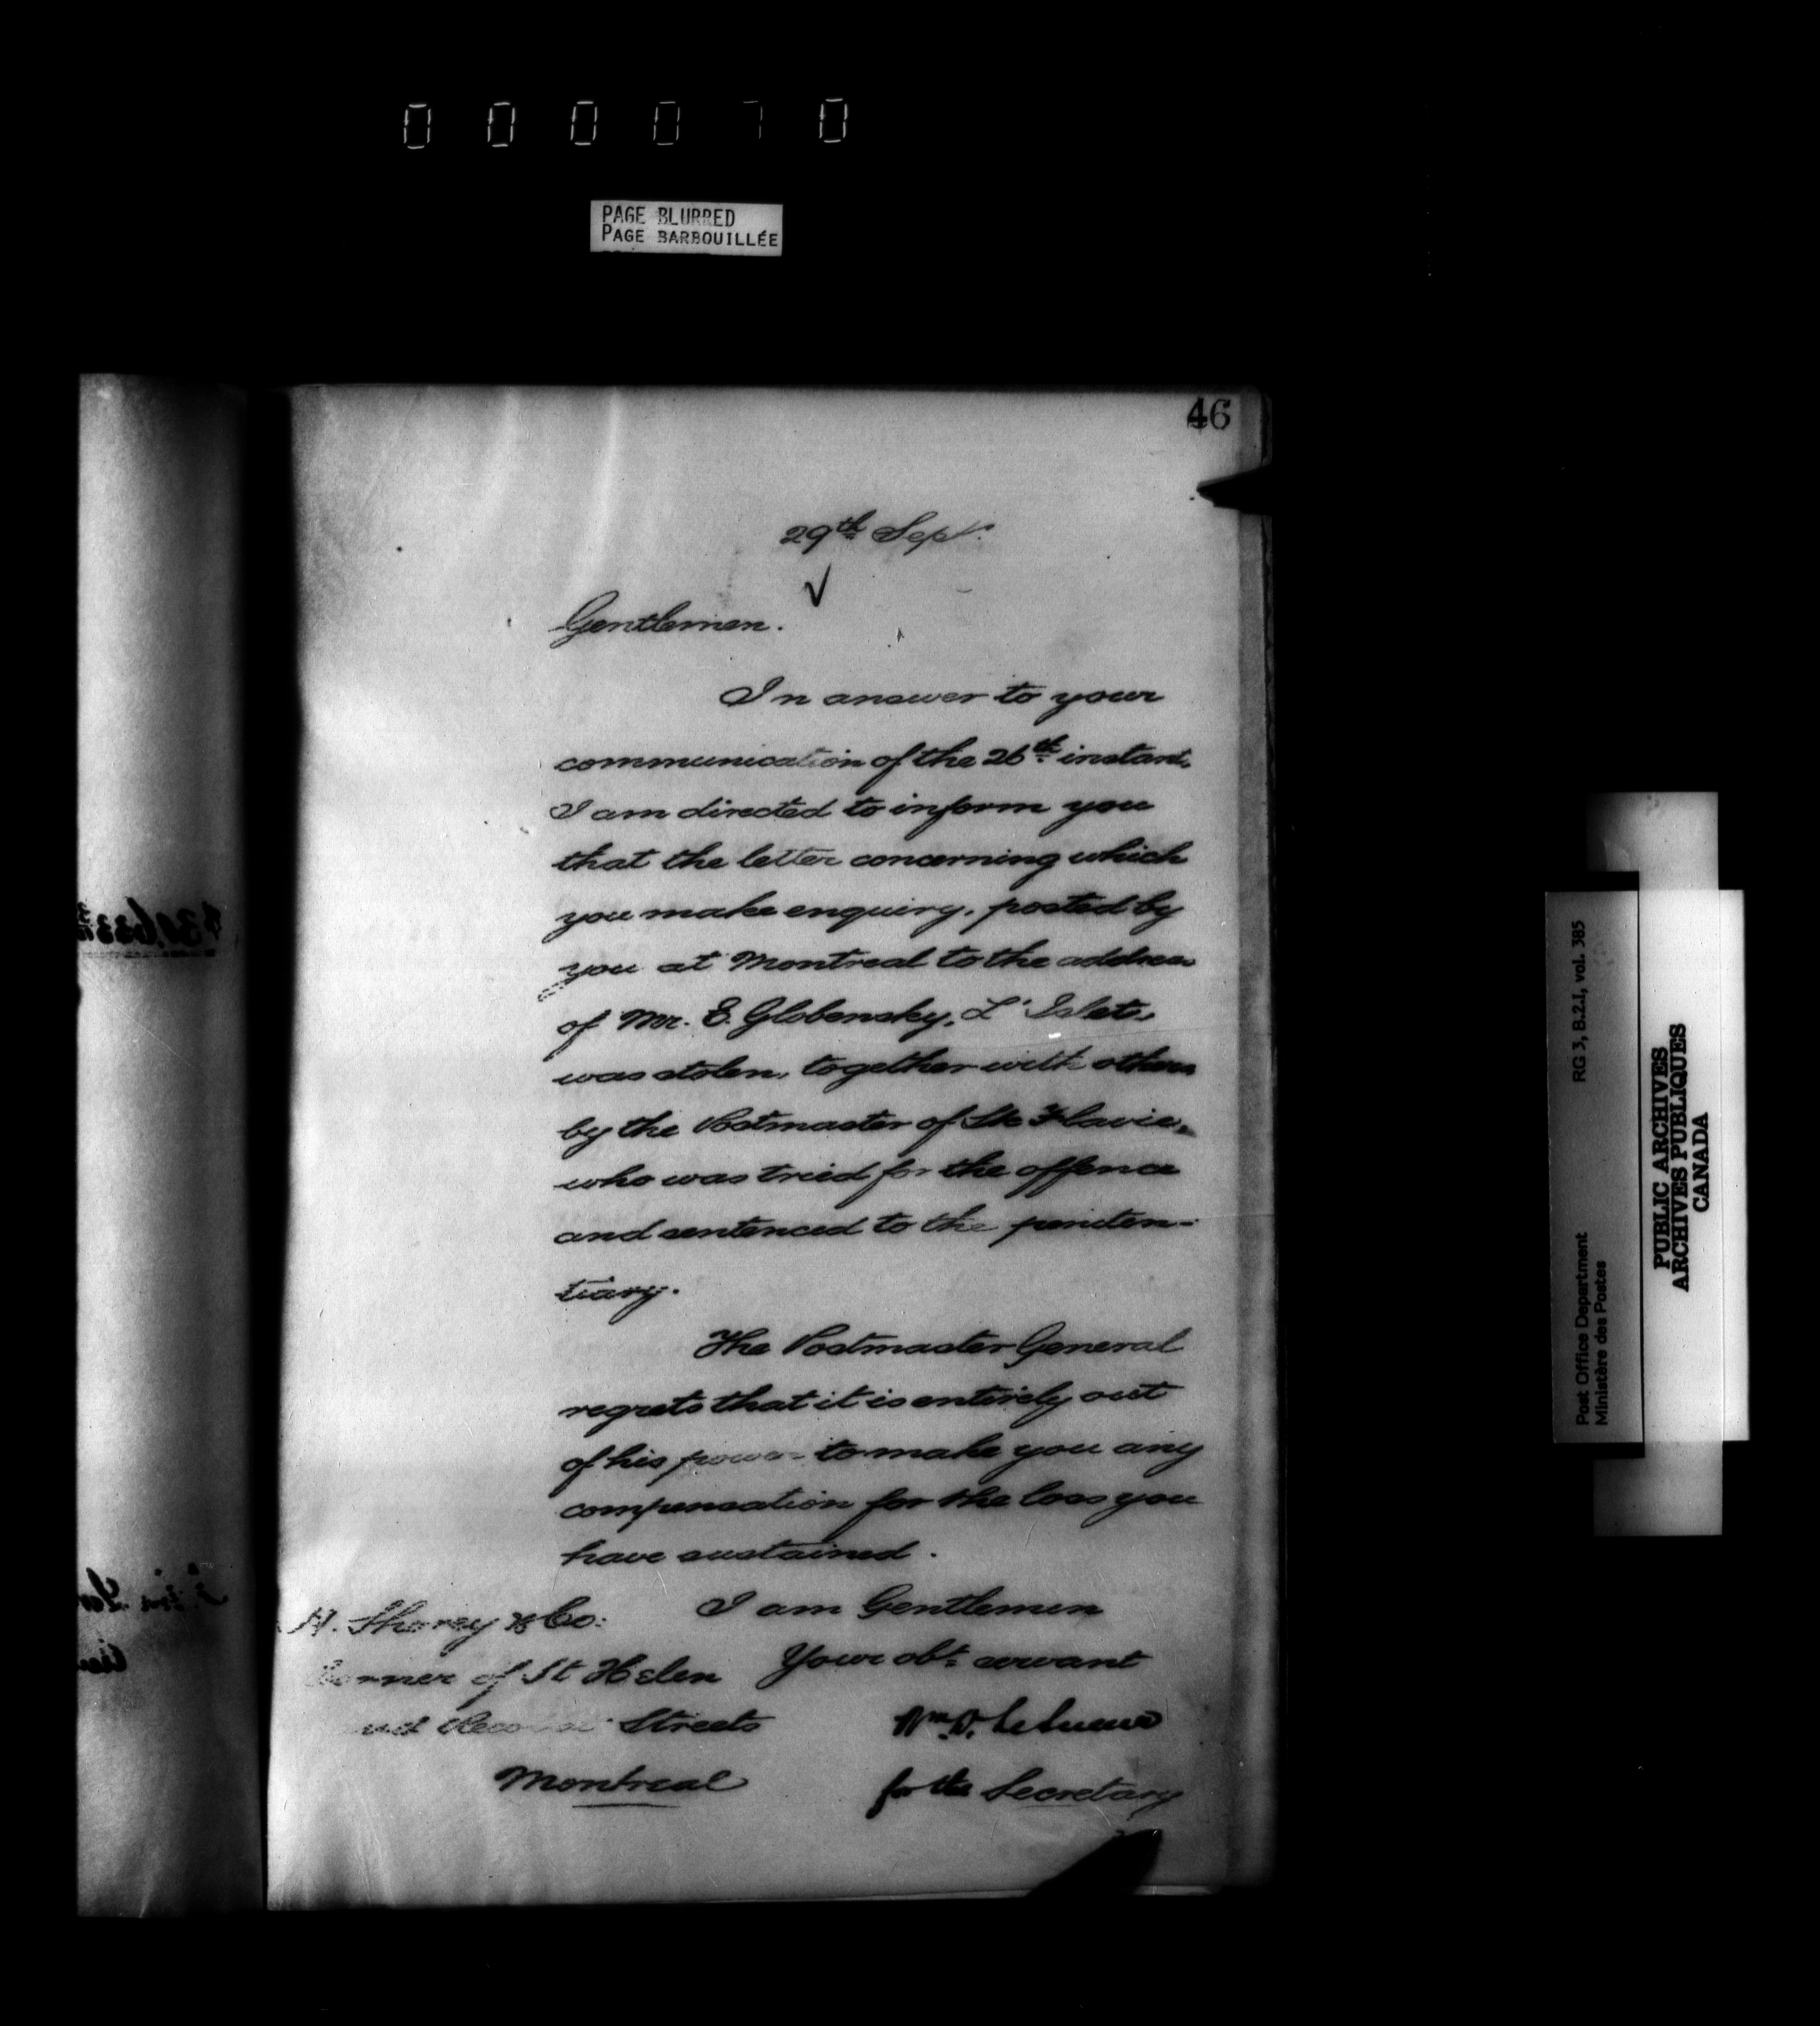 000070
PAGE BLURRED
PAGE BARBOUILLÉE
46
29th Sept.
Gentlemen.
In answer to your
communication of the 26th instant,
I am directed to inform you
that the letter concerning which
you make enquiry, posted by
you at Montreal to the address
of Mr. E. Globensky, L'Islet,
was stolen, together with others
by the Postmaster of Ste Flavie,
who was tried for the offence
and sentenced to the peniten-
tiary.
The Postmaster General
regrets that it is entirely out
of his power to make you any
compensation for the loss you
have sustained.
I am Gentlemen
Your obt servant
Wm D. LeSueur
for the Secretary
H. Shorey & Co:
Corner of St Helen
and Streets
Montreal
Post Office Department RG 3, B.2.I, vol. 385
Ministère des Postes
PUBLIC ARCHIVES
ARCHIVES PUBLIQUES
CANADA